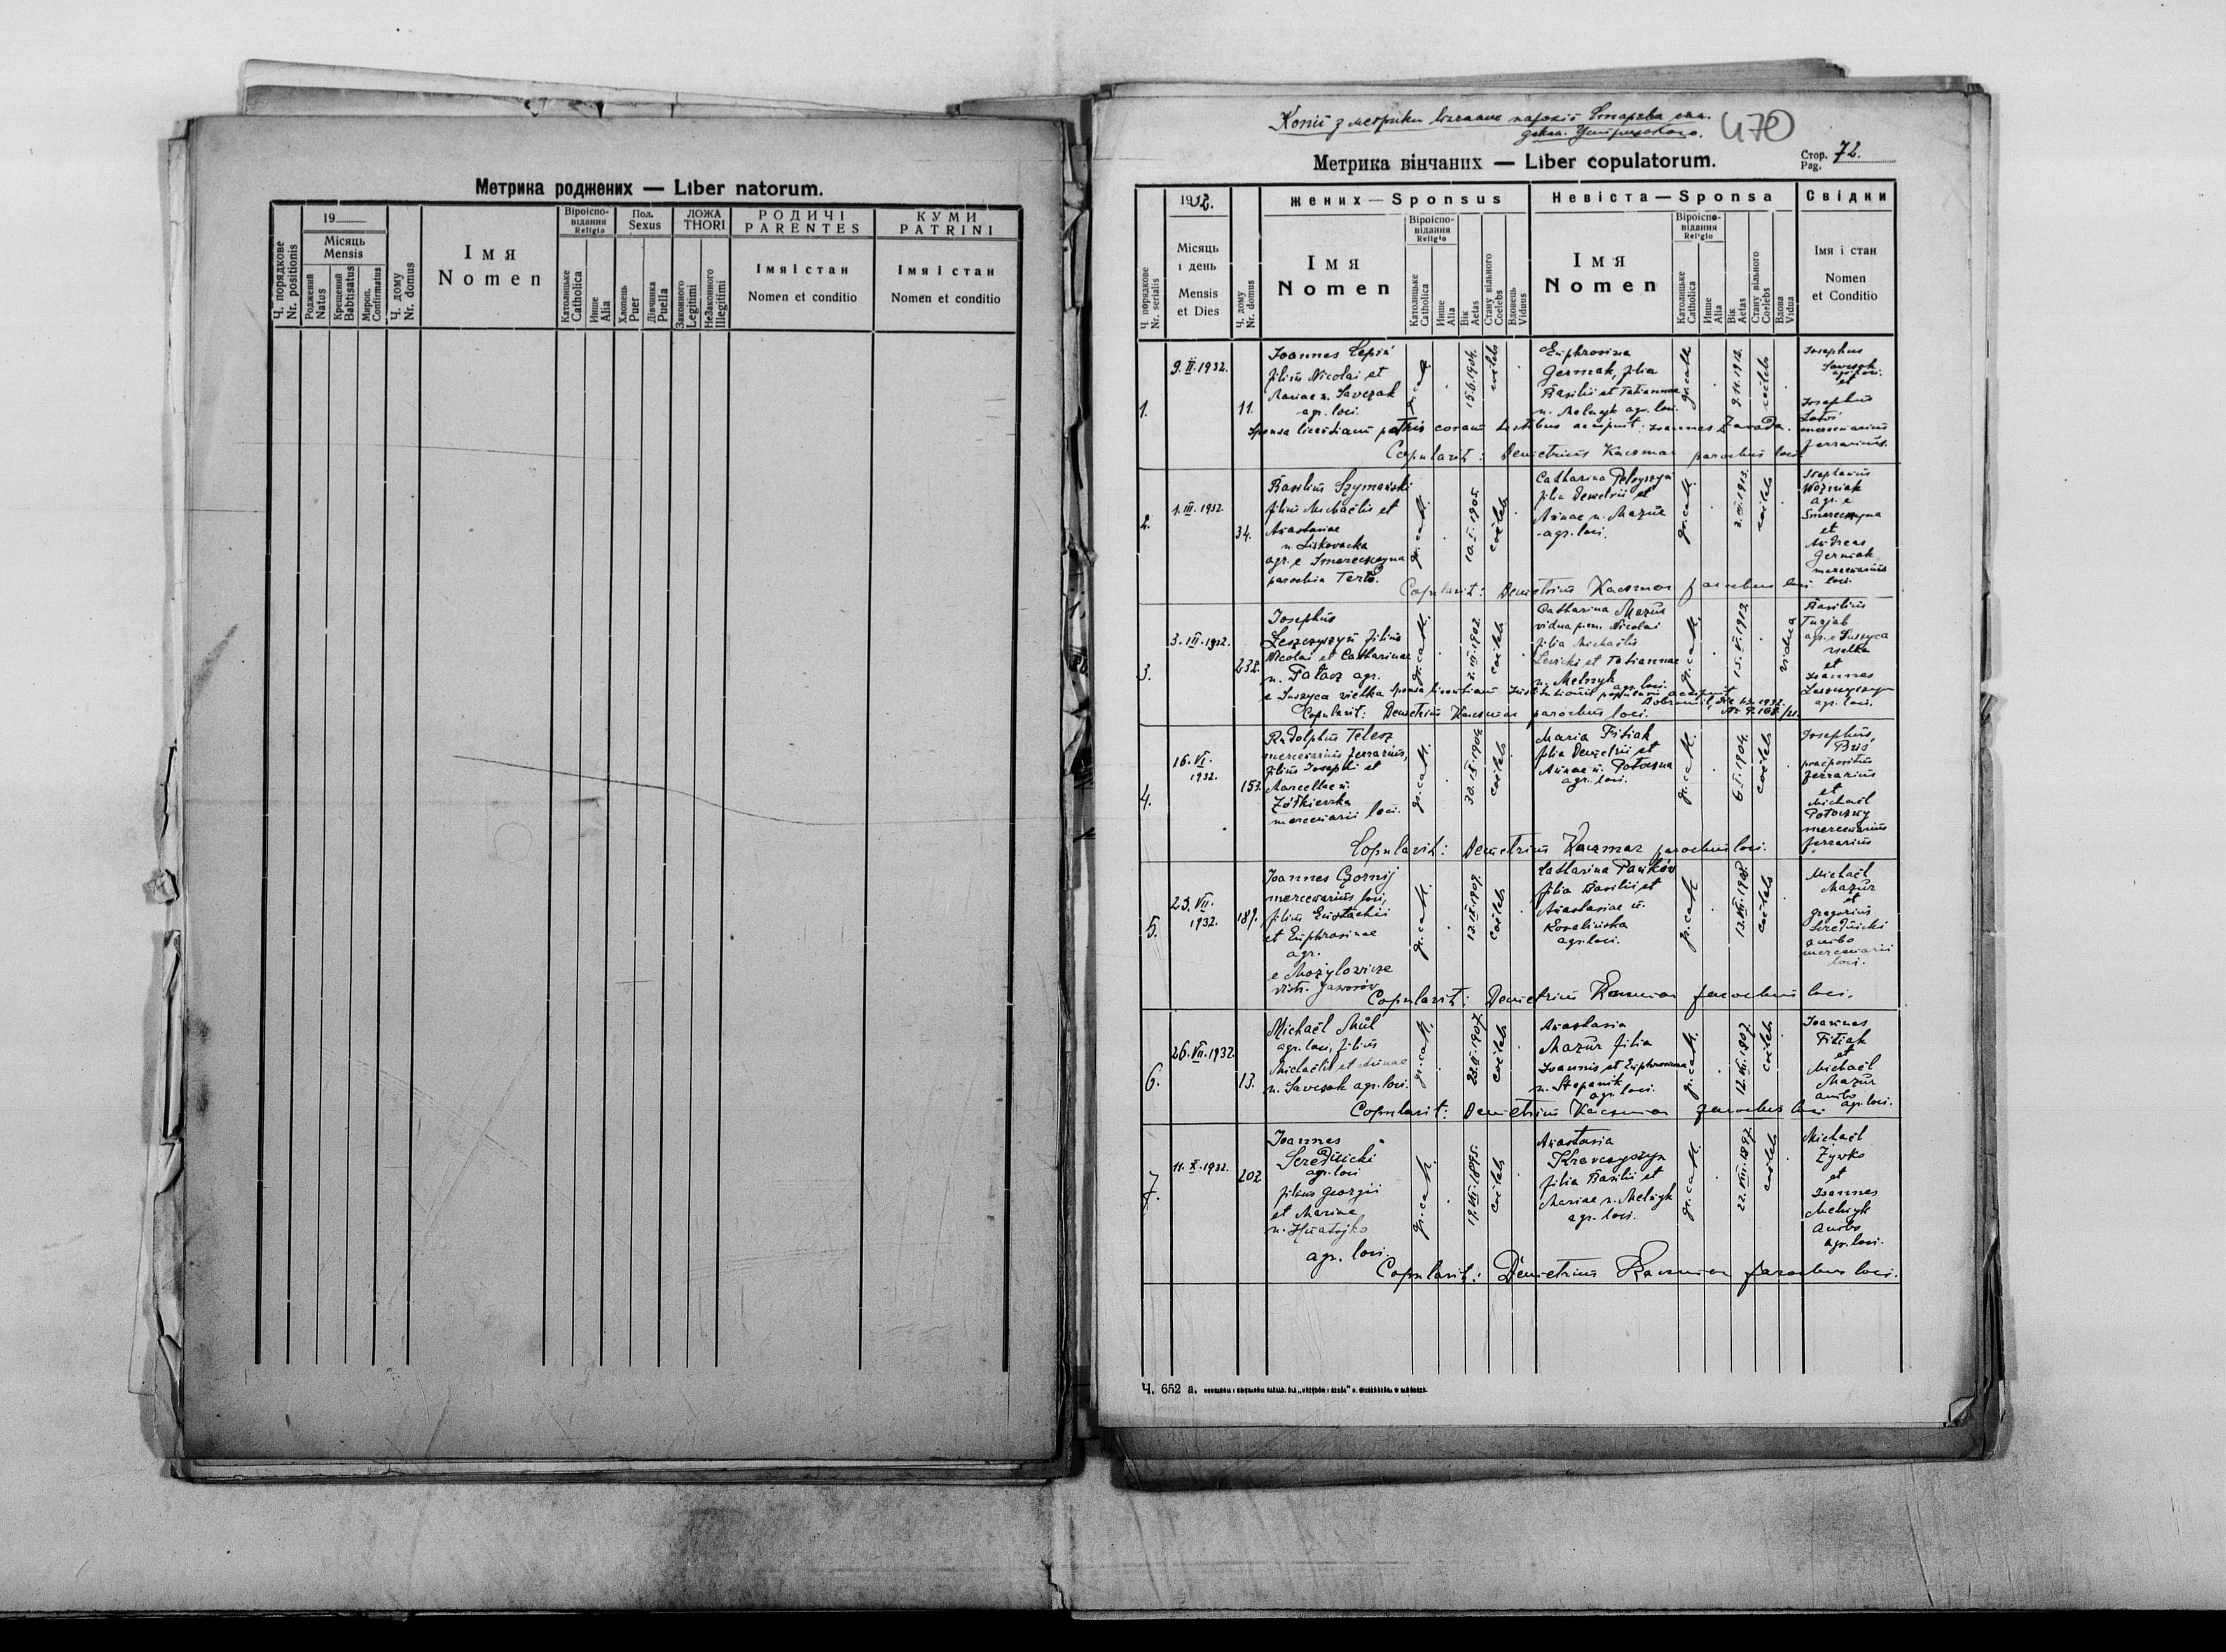 Метрика роджених — Liber natorum.
Ч. порядкове
Nr. positionis
19
Місяць
Mensis
Роджений
Natus
Крещений
Babtisatus
Миропом.
Confirmatus
Ч. дому
Nr. domus
Імя
Nomen
Віроісповідання
Religio
Католицьке
Catholica
Инше
Alia
Пол.
Sexus
Хлопець
Puer
Дівчинка
Puella
ЛОЖА
THORI
Законного
Legitimi
Незаконного
Illegitimi
РОДИЧІ
PARENTES
Імя і стан
Nomen et conditio
КУМИ
PATRINI
Імя і стан
Nomen et conditio
Копії з метрики
470
Метрика вінчаних — Liber copulatorum.
Стор. 72.
Pag.
Ч. порядкове
Nr. serialis
1932.
Місяць
і день
Mensis
et Dies
Ч. дому
Nr. domus
жених — Sponsus
Імя
Nomen
Віроісповідання
Religio
Католицьке
Catholica
Инше
Alia
Вік
Aetas
Стану вільного
Coelebs
Вдовець
Viduus
Невіста — Sponsa
Імя
Nomen
Віроісповідання
Religio
Католицьке
Catholica
Инше
Alia
Вік
Aetas
Стану вільного
Coelebs
Вдова
Vidua
Свідки
Імя і стан
Nomen
et Conditio
1.
9. II. 1932.
11.
Joannes Cepiń
filius Nicolai et
Mariae n. Savczak
agr. loci.
15.6.1904.
coelebs
Euphrosina
Germak, filia
Basilii et Tatiannae
n. Melnyk agr. loci.
gr. cath
9.11.1912.
coelebs
Josephus
Savczak
agr. loci.
et
Josephus
mercenarius
ferrarius.
Sponsa licentiam patris coram testibus accepit: Joannes Zavada.
Copulavit: Demetrius Kaczmar parochus loci
2.
1. III. 1932.
34.
Basilius Szymański
filius Michaëlis et
Anastasiae
n. Liskovacka
agr. e Smereczyna
parochia Terło.
gr. cath.
10. I. 1905.
coelebs
Catharina Pełzyszyn
filia Demetrii et
Annae n. Mazur
agr. loci.
gr. cath.
coelebs
Stephanus
Woźniak
agr. e
Smereczyna
et
Andreas
Germak
mercenarius
loci.
Copulavit: Demetrius Kaczmar parochus loci.
3.
3. III. 1932.
232.
Josephus
Leszczyszyn filius
Nicolai et Catharinae
n. Pałacz agr.
e Suszyca vielka
gr. cath.
2. III. 1902.
coelebs
Catharina Mazur
vidua p.m. Nicolai
filia Michaëlis
Levicki et Tatiannae
n. Melnyk agr. loci.
gr. cath.
15. VI. 1912.
vidua
Basilius
Turjab
agr. e Suszyca
vielka
et
Joannes
Leszczyszyn
agr. loci.
Copulavit: Demetrius Kaczmar parochus loci.
4.
16. VI.
1932.
153.
Rudolphus Telesz
mercenarius ferrarius,
filius Josephi et
Marcellae n.
Żółkievska
mercenarii loci.
gr. cath.
30. IX. 1904.
coelebs
Maria Fitiak
filia Demetrii et
Annae n. Potoczna
agr. loci.
gr. cath.
6. I. 1904.
coelebs
Josephus,
praepositus
ferrarius
et
Michaël
Potoczny
mercenarius
ferrarius
Copulavit: Demetrius Kaczmar parochus loci.
5.
23. VII.
1932.
189.
Joannes Czornij
mercenarius loci,
filius Eustachii
et Euphrosinae
agr.
e Mozyłovicze
distr. Jaworów
gr. cath.
13. IX. 1907.
coelebs
Catharina Pańków
filia Basilii et
Anastasiae n.
Kovalińska
agr. loci.
gr. cath
13. VII. 1908.
coelebs
Michaël
Mazur
et
Gregorius
Serednicki
ambo
mercenarii
loci.
Copulavit: Demetrius Kaczmar parochus loci.
6.
26. VII. 1932.
13.
Michaël Mul
agr. loci, filius
Michaëlis et Annae
n. Savczak agr. loci.
gr. cath.
1907.
coelebs
Anastasia
Mazur filia
Joannis et Euphrosinae
n. Stepanik
agr. loci.
gr. cath.
1907.
coelebs
Joannes
Fitiak
et
Michaël
Mazur
ambo
agr. loci.
Copulavit: Demetrius Kaczmar parochus loci
7.
11. X. 1932.
202
Joannes
Serednicki
agr. loci
filius Georgii
et Mariae
n. Hnatojko
agr. loci.
gr. cath.
19. VII. 1895.
coelebs
Anastasia
Kravczyszyn
filia Basilii et
Mariae n. Melnyk
agr. loci.
gr. cath.
22. VIII. 1897.
coelebs
Michaël
Żywko
et
Joannes
Melnyk
ambo
agr. loci.
Copulavit: Demetrius Kaczmar parochus loci.
Ч. 652 a.